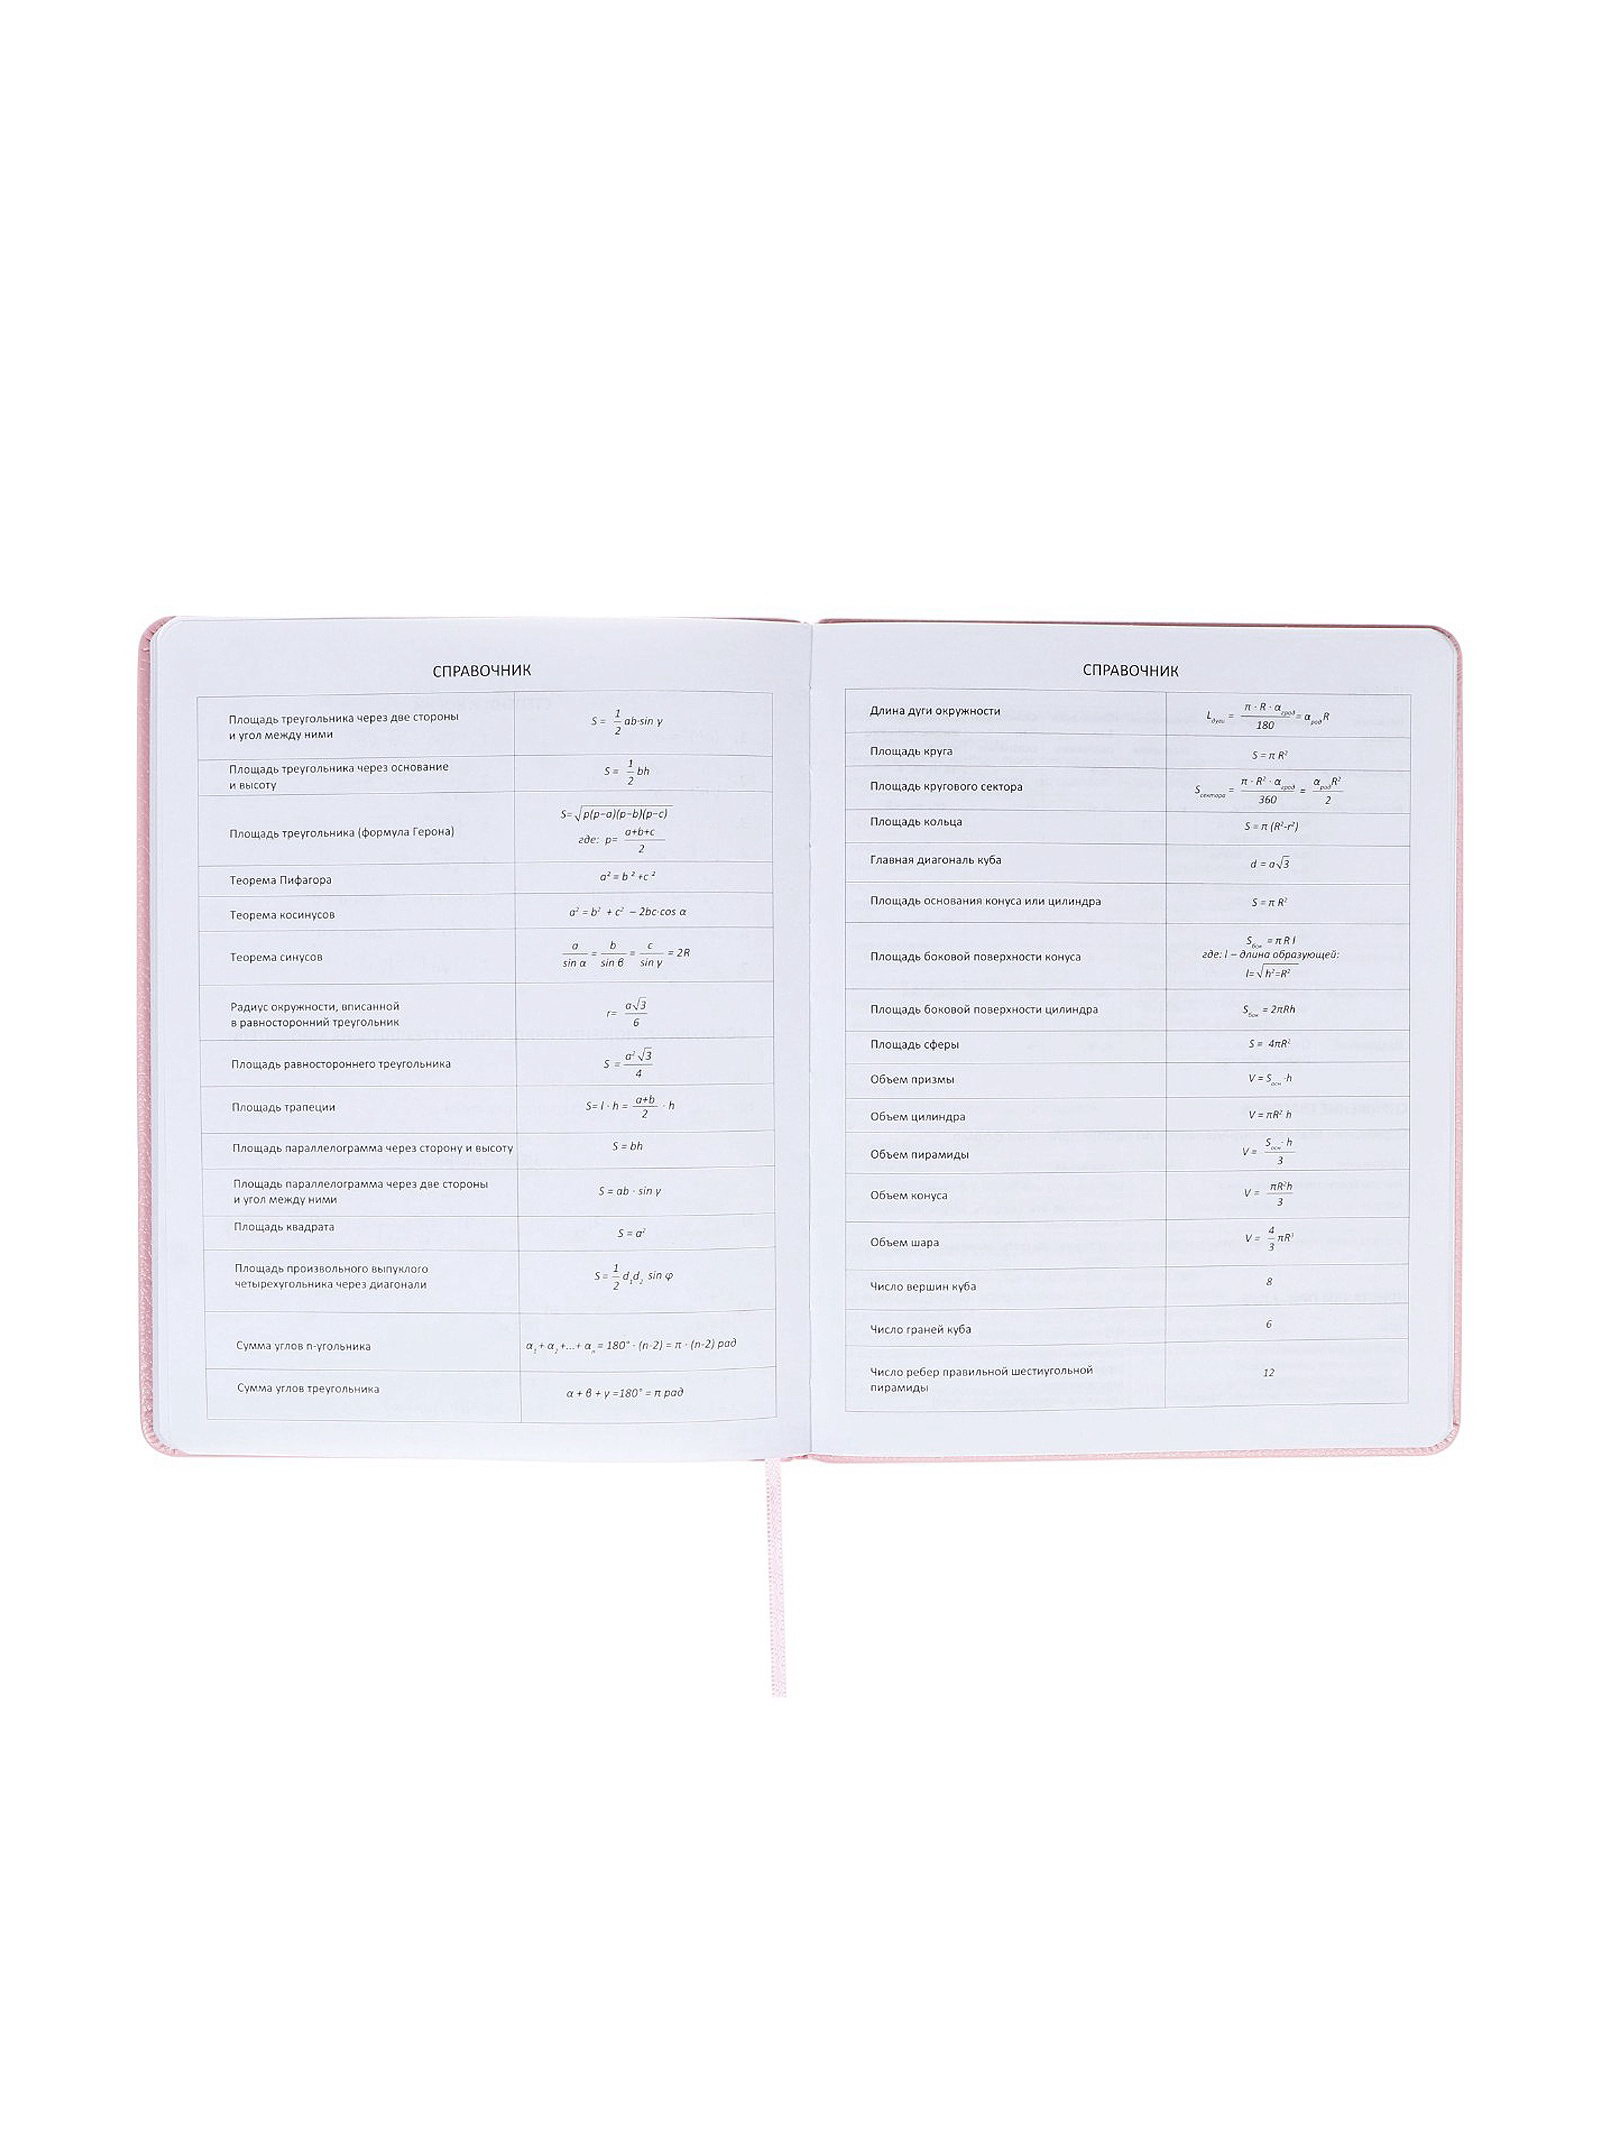 СПРАВОЧНИК
Площадь треугольника через две стороны
и угол между ними
S = 1/2 ab·sin γ
Площадь треугольника через основание
и высоту
S = 1/2 bh
Площадь треугольника (формула Герона)
S=√p(p−a)(p−b)(p−c)
где: p= a+b+c/2
Теорема Пифагора
a² = b² +c²
Теорема косинусов
a² = b² + c² − 2bc·cos α
Теорема синусов
a/sin α = b/sin β = c/sin γ = 2R
Радиус окружности, вписанной
в равносторонний треугольник
r= a√3/6
Площадь равностороннего треугольника
S = a²√3/4
Площадь трапеции
S= l · h = a+b/2 · h
Площадь параллелограмма через сторону и высоту
S = bh
Площадь параллелограмма через две стороны
и угол между ними
S = ab · sin γ
Площадь квадрата
S = a²
Площадь произвольного выпуклого
четырехугольника через диагонали
S = 1/2 d₁d₂ sin φ
Сумма углов n-угольника
α₁ + α₂ +...+ αₙ = 180° · (n-2) = π · (n-2) рад
Сумма углов треугольника
α + β + γ =180° = π рад
СПРАВОЧНИК
Длина дуги окружности
Lдуги = π · R · αград/180 = αрад R
Площадь круга
S = π R²
Площадь кругового сектора
Sсектора = π · R² · αград/360 = αрад R²/2
Площадь кольца
S = π (R²-r²)
Главная диагональ куба
d = a√3
Площадь основания конуса или цилиндра
S = π R²
Площадь боковой поверхности конуса
Sбок = π R l
где: l – длина образующей:
l=√h²=R²
Площадь боковой поверхности цилиндра
Sбок = 2πRh
Площадь сферы
S = 4πR²
Объем призмы
V = Sосн ·h
Объем цилиндра
V = πR² h
Объем пирамиды
V = Sосн · h/3
Объем конуса
V = πR²h/3
Объем шара
V = 4/3 πR³
Число вершин куба
8
Число граней куба
6
Число ребер правильной шестиугольной
пирамиды
12